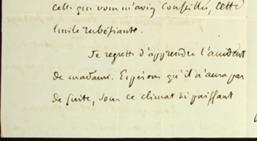 celle que vous m'aviez conseillée, cette
huile rubéfiante.
Je regrette d'apprendre l'accident
de madame. Espérons qu'il n'aura pas
de suite, sous ce climat si